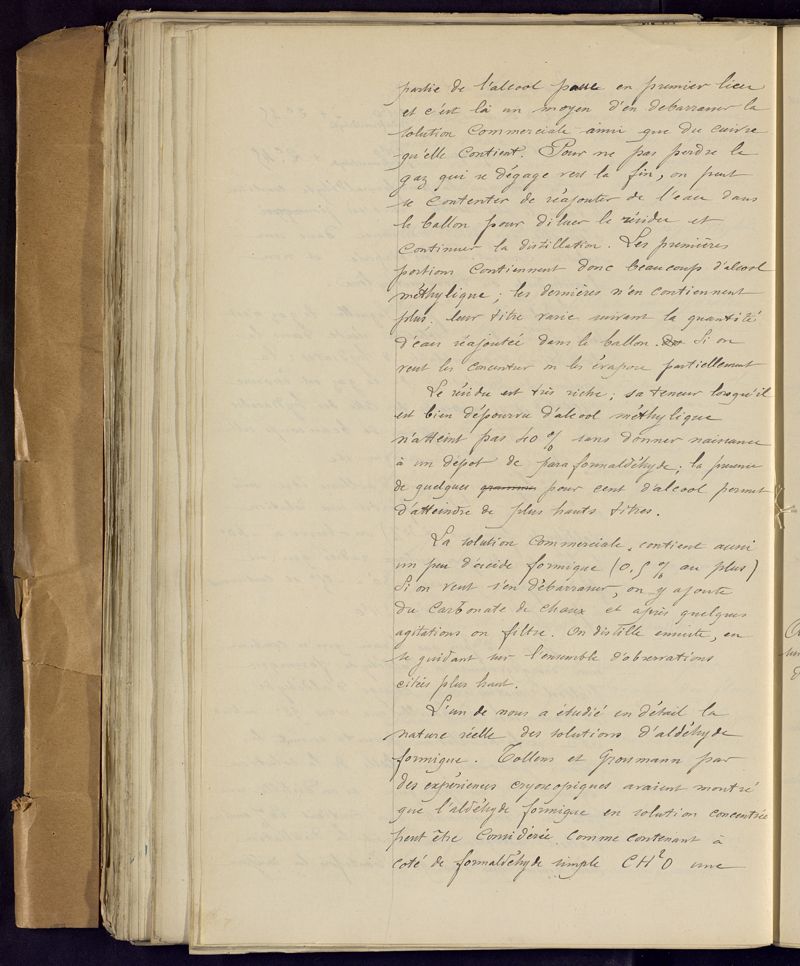 partie de l'alcool passe en premier lieu
et c'est là un moyen d'en debarrasser la
solution commerciale ainsi que du cuivre
qu'elle contient. Pour ne pas perdre le
gaz qui se dégage vers la fin, on peut
se contenter de réajouter de l'eau dans
le ballon pour diluer le résidu et
continuer la distillation. Les premières
portions contiennent donc beaucoup d'alcool
méthylique ; les dernières n'en contiennent
plus, leur titre varie suivant la quantité
d'eau réajoutée dans le ballon. Si on
veut les concentrer on les évapore partiellement
Le résidu est très riche ; sa teneur lorsqu'il
est bien dépourvu d'alcool méthylique
n'atteint pas 40 % sans donner naissance
à un dépot de paraformaldéhyde ; la présence
de quelques grammes pour cent d'alcool permet
d'atteindre de plus hauts titres.
La solution commerciale, contient aussi
un peu d'acide formique (0,5 % au plus)
Si on veut s'en débarrasser, on y ajoute
du carbonate de chaux et après quelques
agitations on filtre. On distille ensuite, en
se guidant sur l'ensemble d'observations
citées plus haut.
L'un de nous a étudié en détail la
nature réelle des solutions d'aldéhyde
formique. Tollens et Grossmann par
des expériences cryoscopiques avaient montré
que l'aldéhyde formique en solution concentrée
peut être considérée comme contenant à
coté de formaldéhyde simple CH²O une